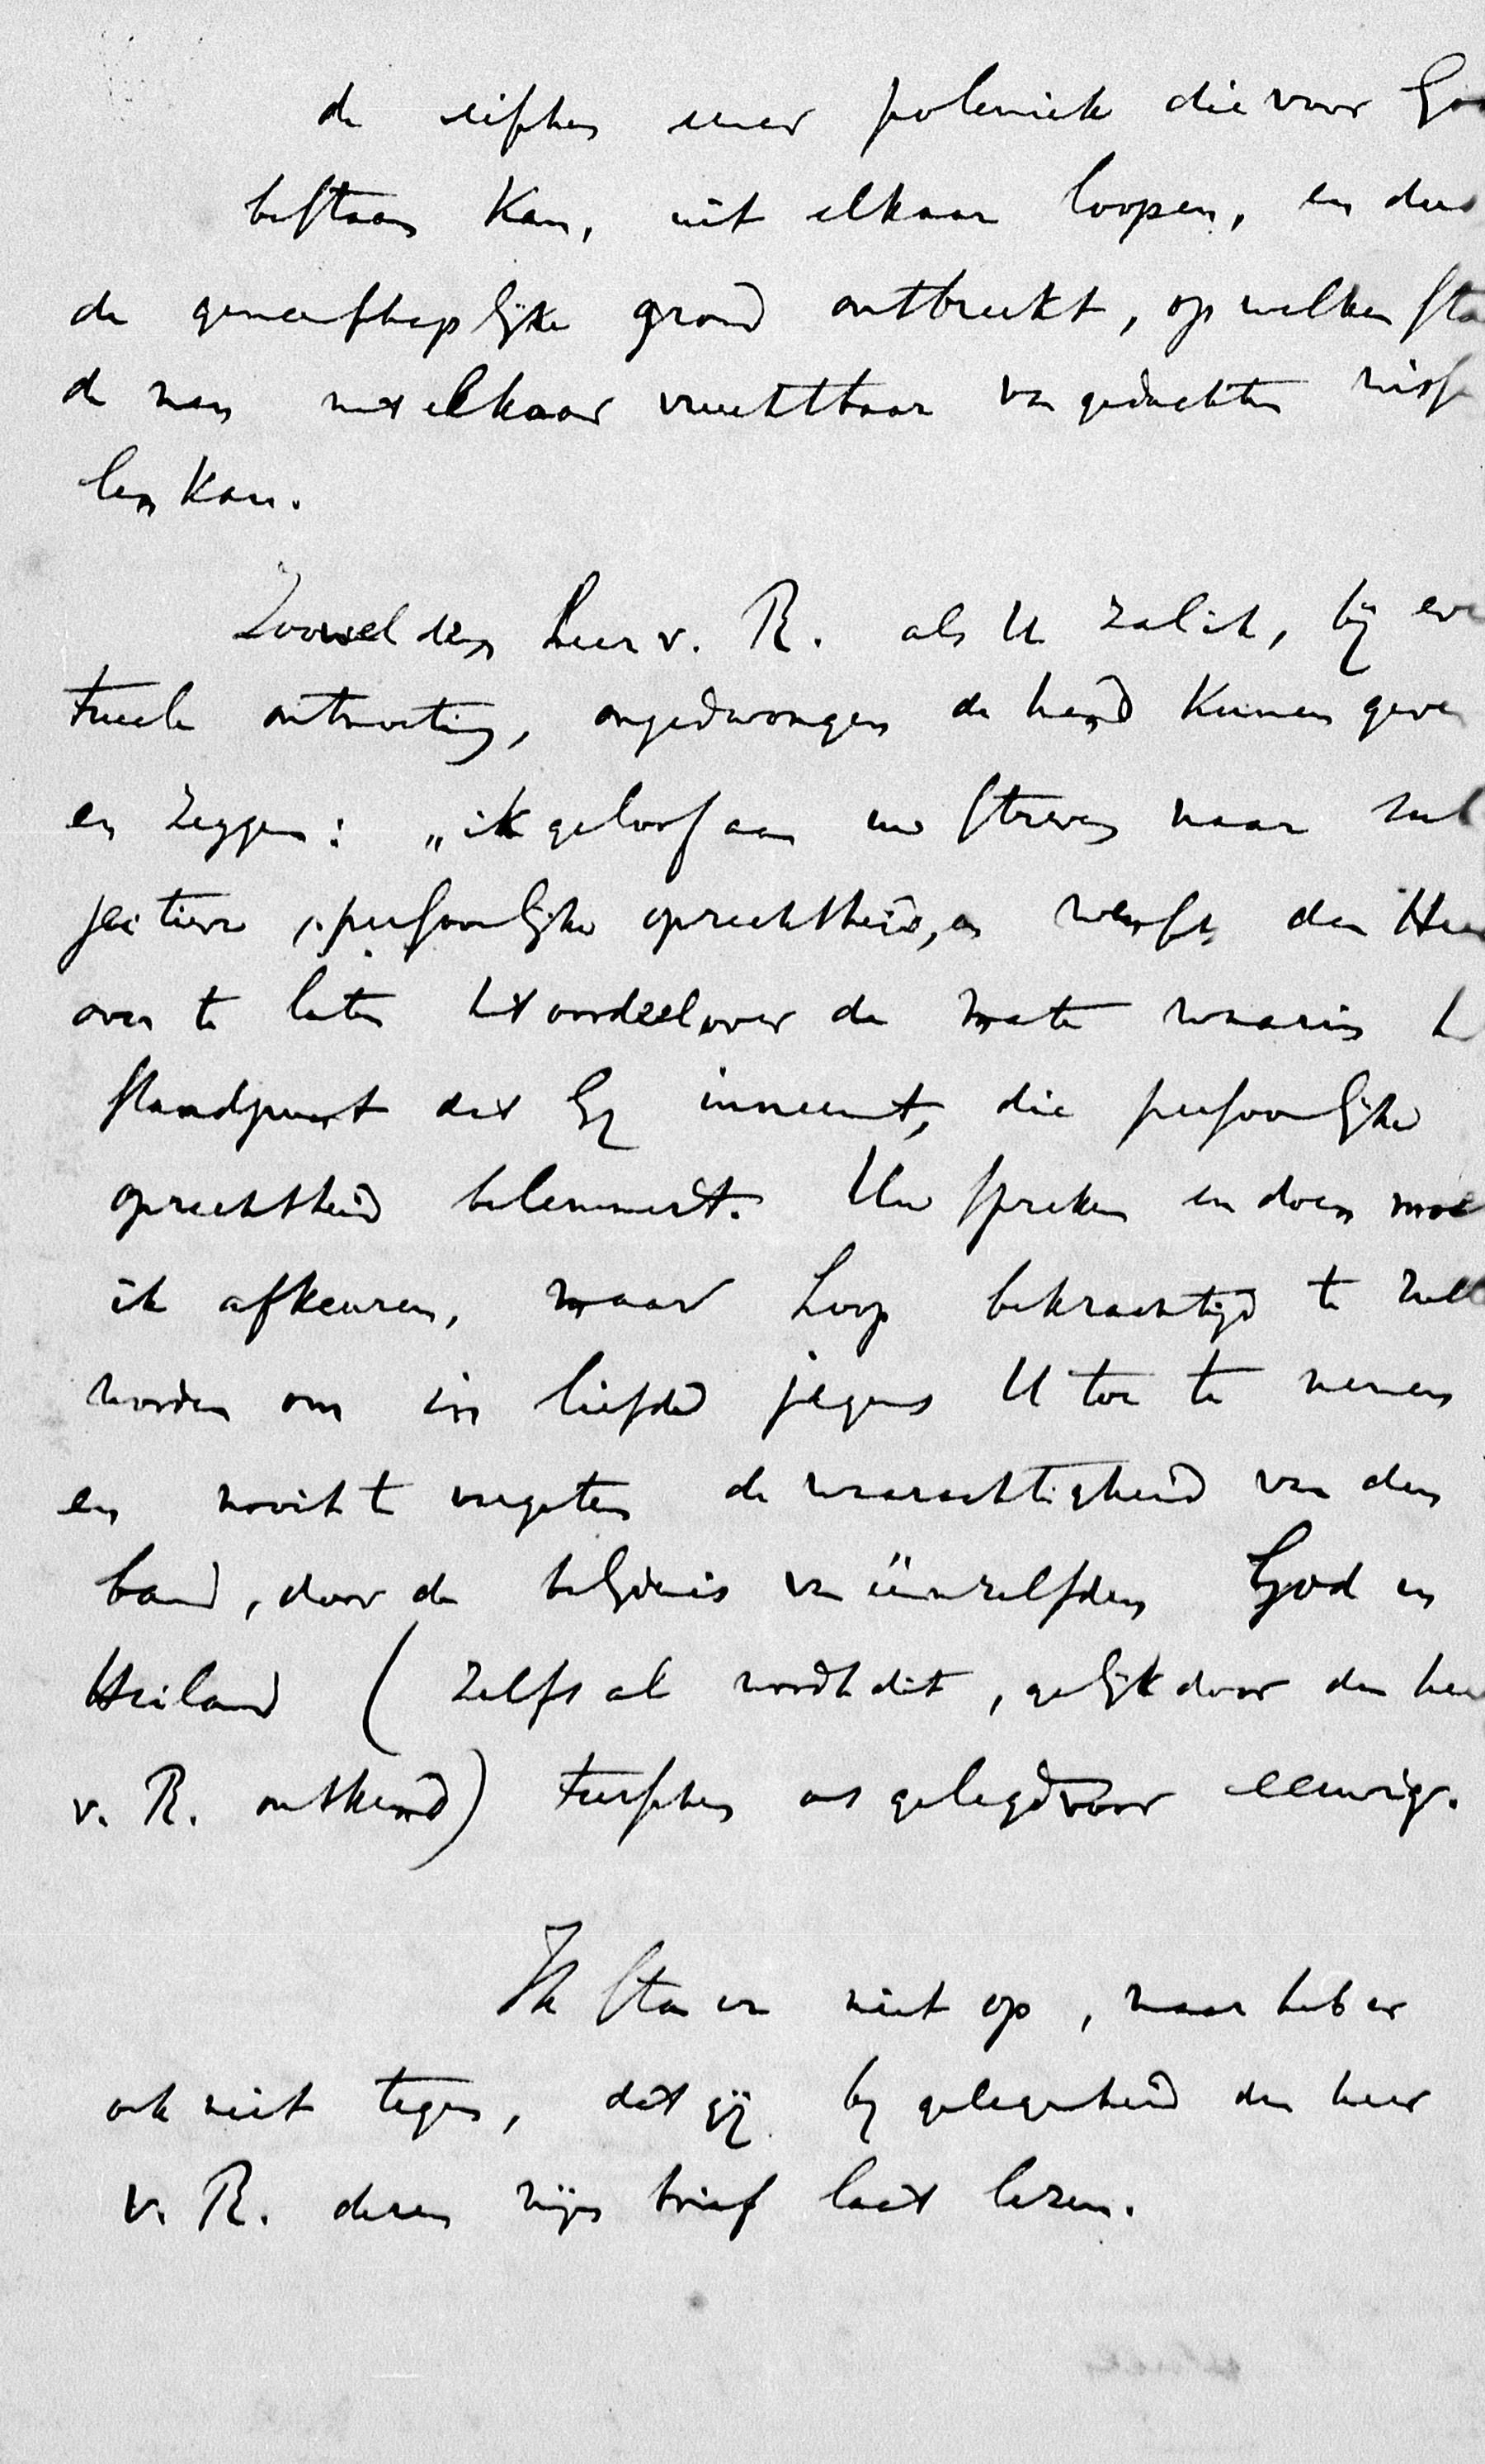 de eischen eener polemiek die voor God
bestaan kan, uit elkaar loopen, en dus
de gemeenschaplijke grond ontbreekt, op welken sta
de men met elkaar vruchtbaar van gedachten wiss
len kan.
Zoowel den Heer v. R. als U zal ik, bij even
tueele ontmoeting, ongedwongen de hand kunnen geven
en zeggen: „ik geloof aan uw streven naar sub
jectieve, persoonlijke oprechtheid, en wensch den Heer
over te laten het oordeel over de mate waarin h
standpunt dat Gij inneemt, die persoonlijke
oprechtheid belemmert. Uw spreken en doen moe
ik afkeuren, maar hoop bekrachtigd te zull
worden om in liefde jegens U toe te nemen
en nooit te vergeten de waarachtigheid van den
band, door de belijdenis van éénzelfden God en
Heiland (zelfs al wordt dit, gelijk door den heer
v. R. ontkend) tusschen ons gelegd voor eeuwig.
Ik sta er niet op, maar heb er
ook niet tegen, dat gij bij gelegenheid den heer
v. R. dezen mijn brief laat lezen.